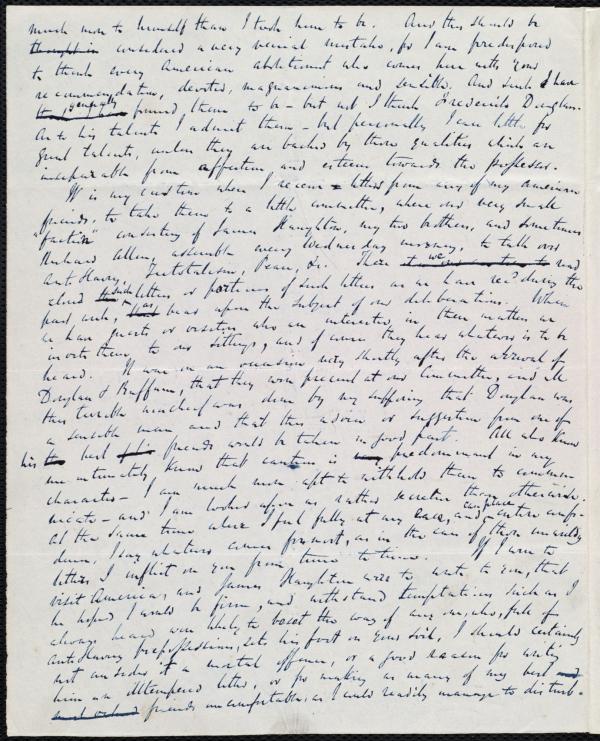 much more to himself than I took him to be. And this should be
thought in considered a very venial mistake, for I am predisposed
to think every American abolitionist who comes here with your
recommendation, devoted, magnanimous and sensible, and such I have
generally found them to be - but not I think Frederick Douglass.
As to his talents I admit them - but personally I care little for
great talents, unless they are backed by those qualities which are
inseparable from affection and esteem towards the possessor.
It is my custom when I receive letters from any of my American
friends, to take them to a little committee, where our very small
"faction" consisting of James Haughton, my two brothers, and sometimes
Richard Allen, assemble every Wednesday morning, to talk over
Anti Slavery, Teetotalism, Peace, &c. There we read
aloud such letters or portions of such letters as we have recd during the
past week, as bear upon the subject of our deliberations. When
we have guests or visitors who are interested in these matters we
invite them to our sittings, and of course they hear whatever is to be
heard. It was on an occasion very shortly after the arrival of
Douglass & Buffum, that they were present at our Committee, and all
this terrible mischief was done by my supposing that Douglass was
a sensible man and that this advice or suggestion from one of
his best friends would be taken in good part. All who know
me intimately know that caution is predominant in my
character - I am much more apt to withhold than to communicate
- and I am looked upon as rather secretive than otherwise.
At the same time where I feel fully at my ease, and confidence, in the case of those
down, I say whatever comes foremost, as in the case of those
letters I inflict on you from time to time. If I were to
visit America, and James Haughton were to write to you, that
he hoped I would be firm, and withstand temptations such as I
always heard were likely to beset the way of any one, who, full of
Anti Slavery prepossessions, sets his foot on your soil, I should certainly
not consider it a mortal offence, or a good reason for writing
him an illtempered letter, or for making as many of my best
friends uncomfortable, as I could readily manage to disturb-